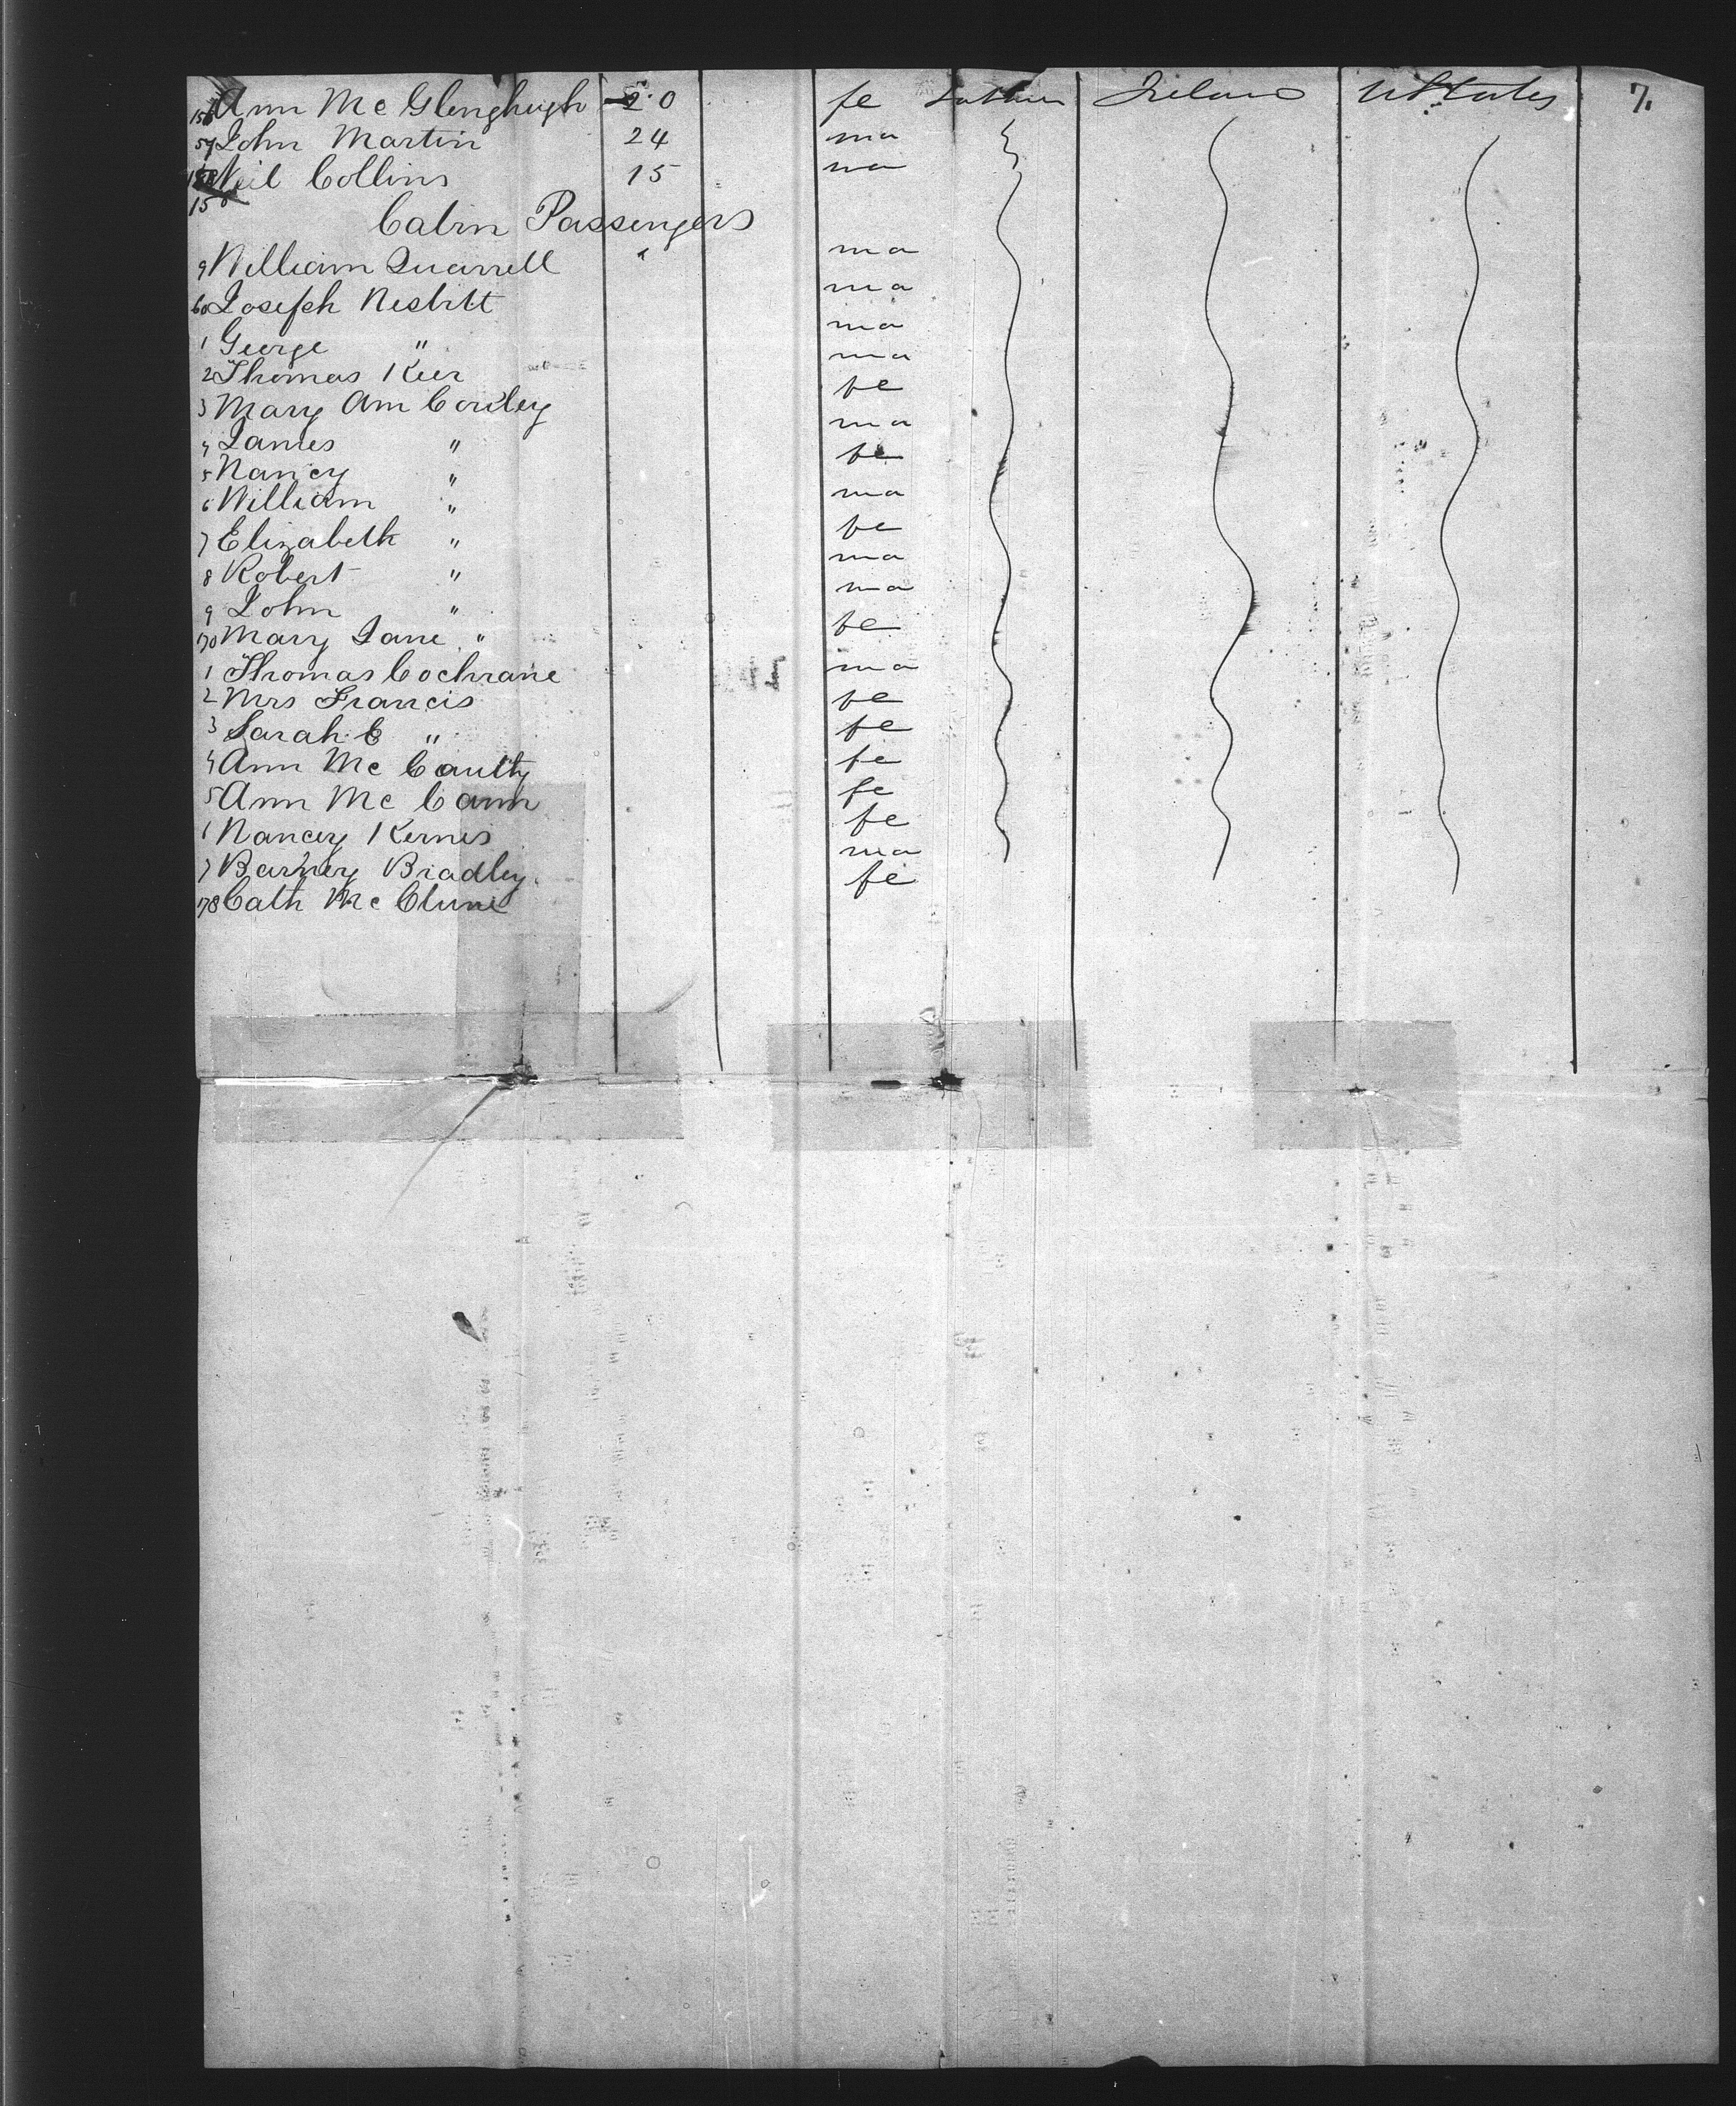 156 Ann Mc Glenghugh 20 fe Ireland U States 7.
57 John Martin 24 ma
158 Neil Collins 15 ma
15
Cabin Passengers
9 William Quarrell ma
60 Joseph Nesbitt ma
1 George " ma
2 Thomas Kier ma
3 Mary Ann Conley fe
4 James " ma
5 Nancy " fe
6 William " ma
7 Elizabeth " fe
8 Robert " ma
9 John " ma
70 Mary Jane " fe
1 Thomas Cochrane ma
2 Mrs Francis fe
3 Sarah E " fe
4 Ann Mc Caulty fe
5 Ann Mc Cann fe
6 Nancy Kernes fe
7 Barney Bradley ma
78 Cath Mc Clune fe